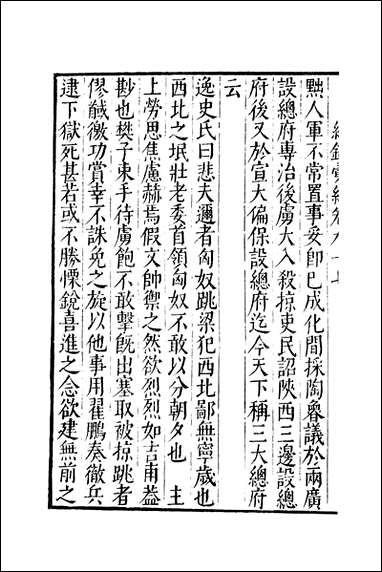 點人軍不常置事妥即巳成化間採陶睿議於兩廣
設總府專治後虜大入殺掠吏民詔陝西三邊設總
府後又於宣大偏保設總府迄今天下稱三大總府
云
逸史氏曰悲夫邇者匈奴跳梁犯西北鄙無寧歲也
西北之垊壯老委首領匈奴不敢以分朝夕也　主
上勞思焦慮赫焉假文帥禦之然欲烈烈如吉甫葢
尠也樊子束手待虜飽不敢擊旣出塞取被掠跳者
僇馘徼功賞幸不誅免之旋以他事用翟鵬奏徹兵
逮下獄死甚若或不勝慄銳喜進之念欲建無前之